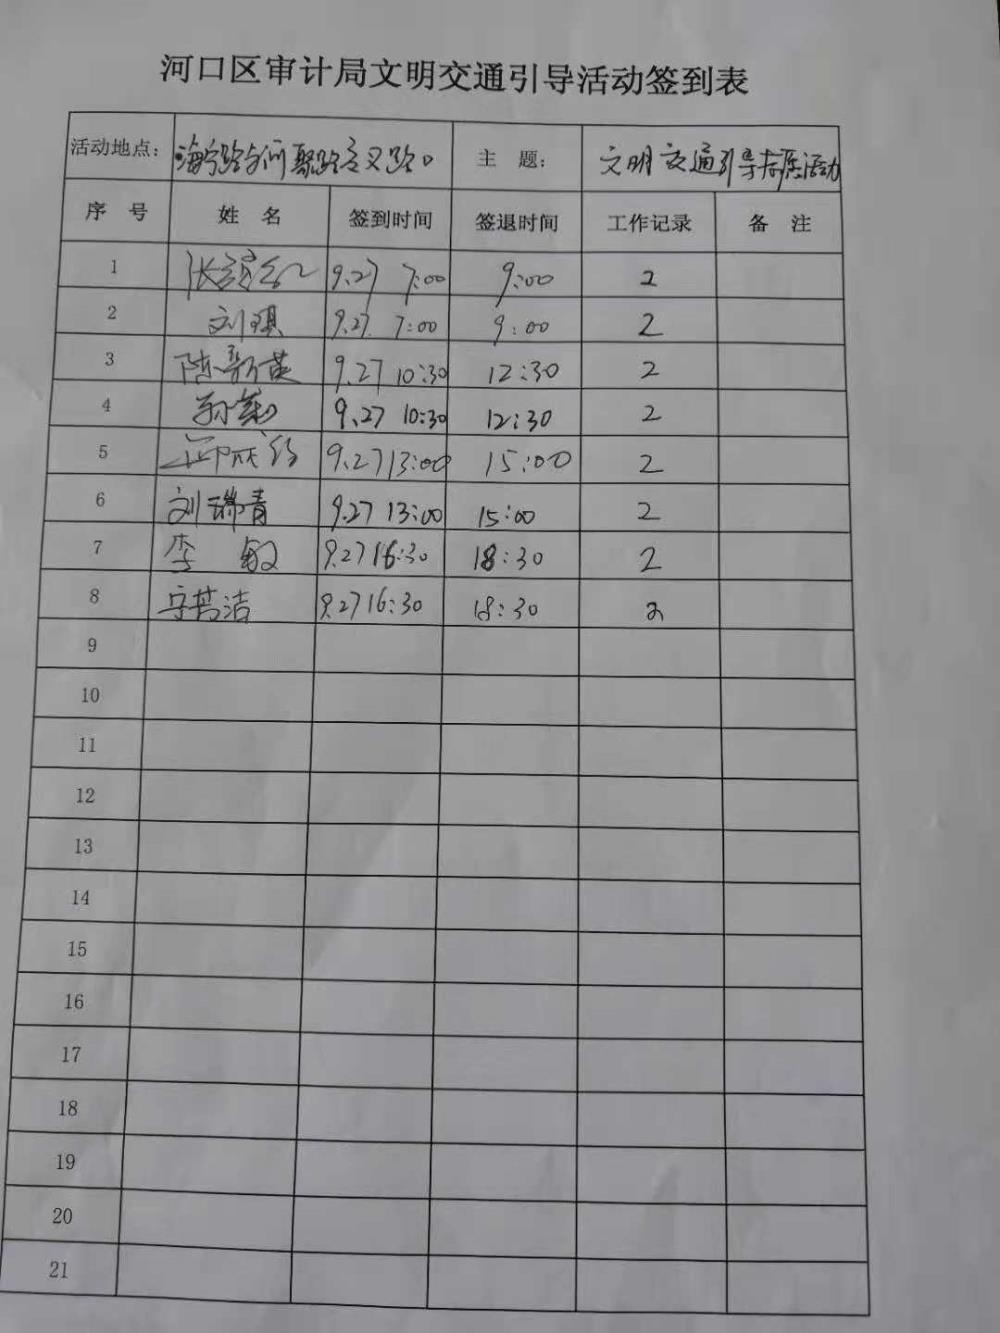 河口区审计局文明交通引导活动签到表
活动地点： 海宁路与 路交叉路口 主 题： 文明交通引导志愿活动
序 号 姓 名 签到时间 签退时间 工作记录 备 注
1 张 9.27 7:00 9:00 2
2 刘琪 9.27 7:00 9:00 2
3 陈新英 9.27 10:30 12:30 2
4 孙 9.27 10:30 12:30 2
5 9.27 13:00 15:00 2
6 刘瑞青 9.27 13:00 15:00 2
7 李 敏 9.27 16:30 18:30 2
8 洁 9.27 16:30 18:30 2
9
10
11
12
13
14
15
16
17
18
19
20
21